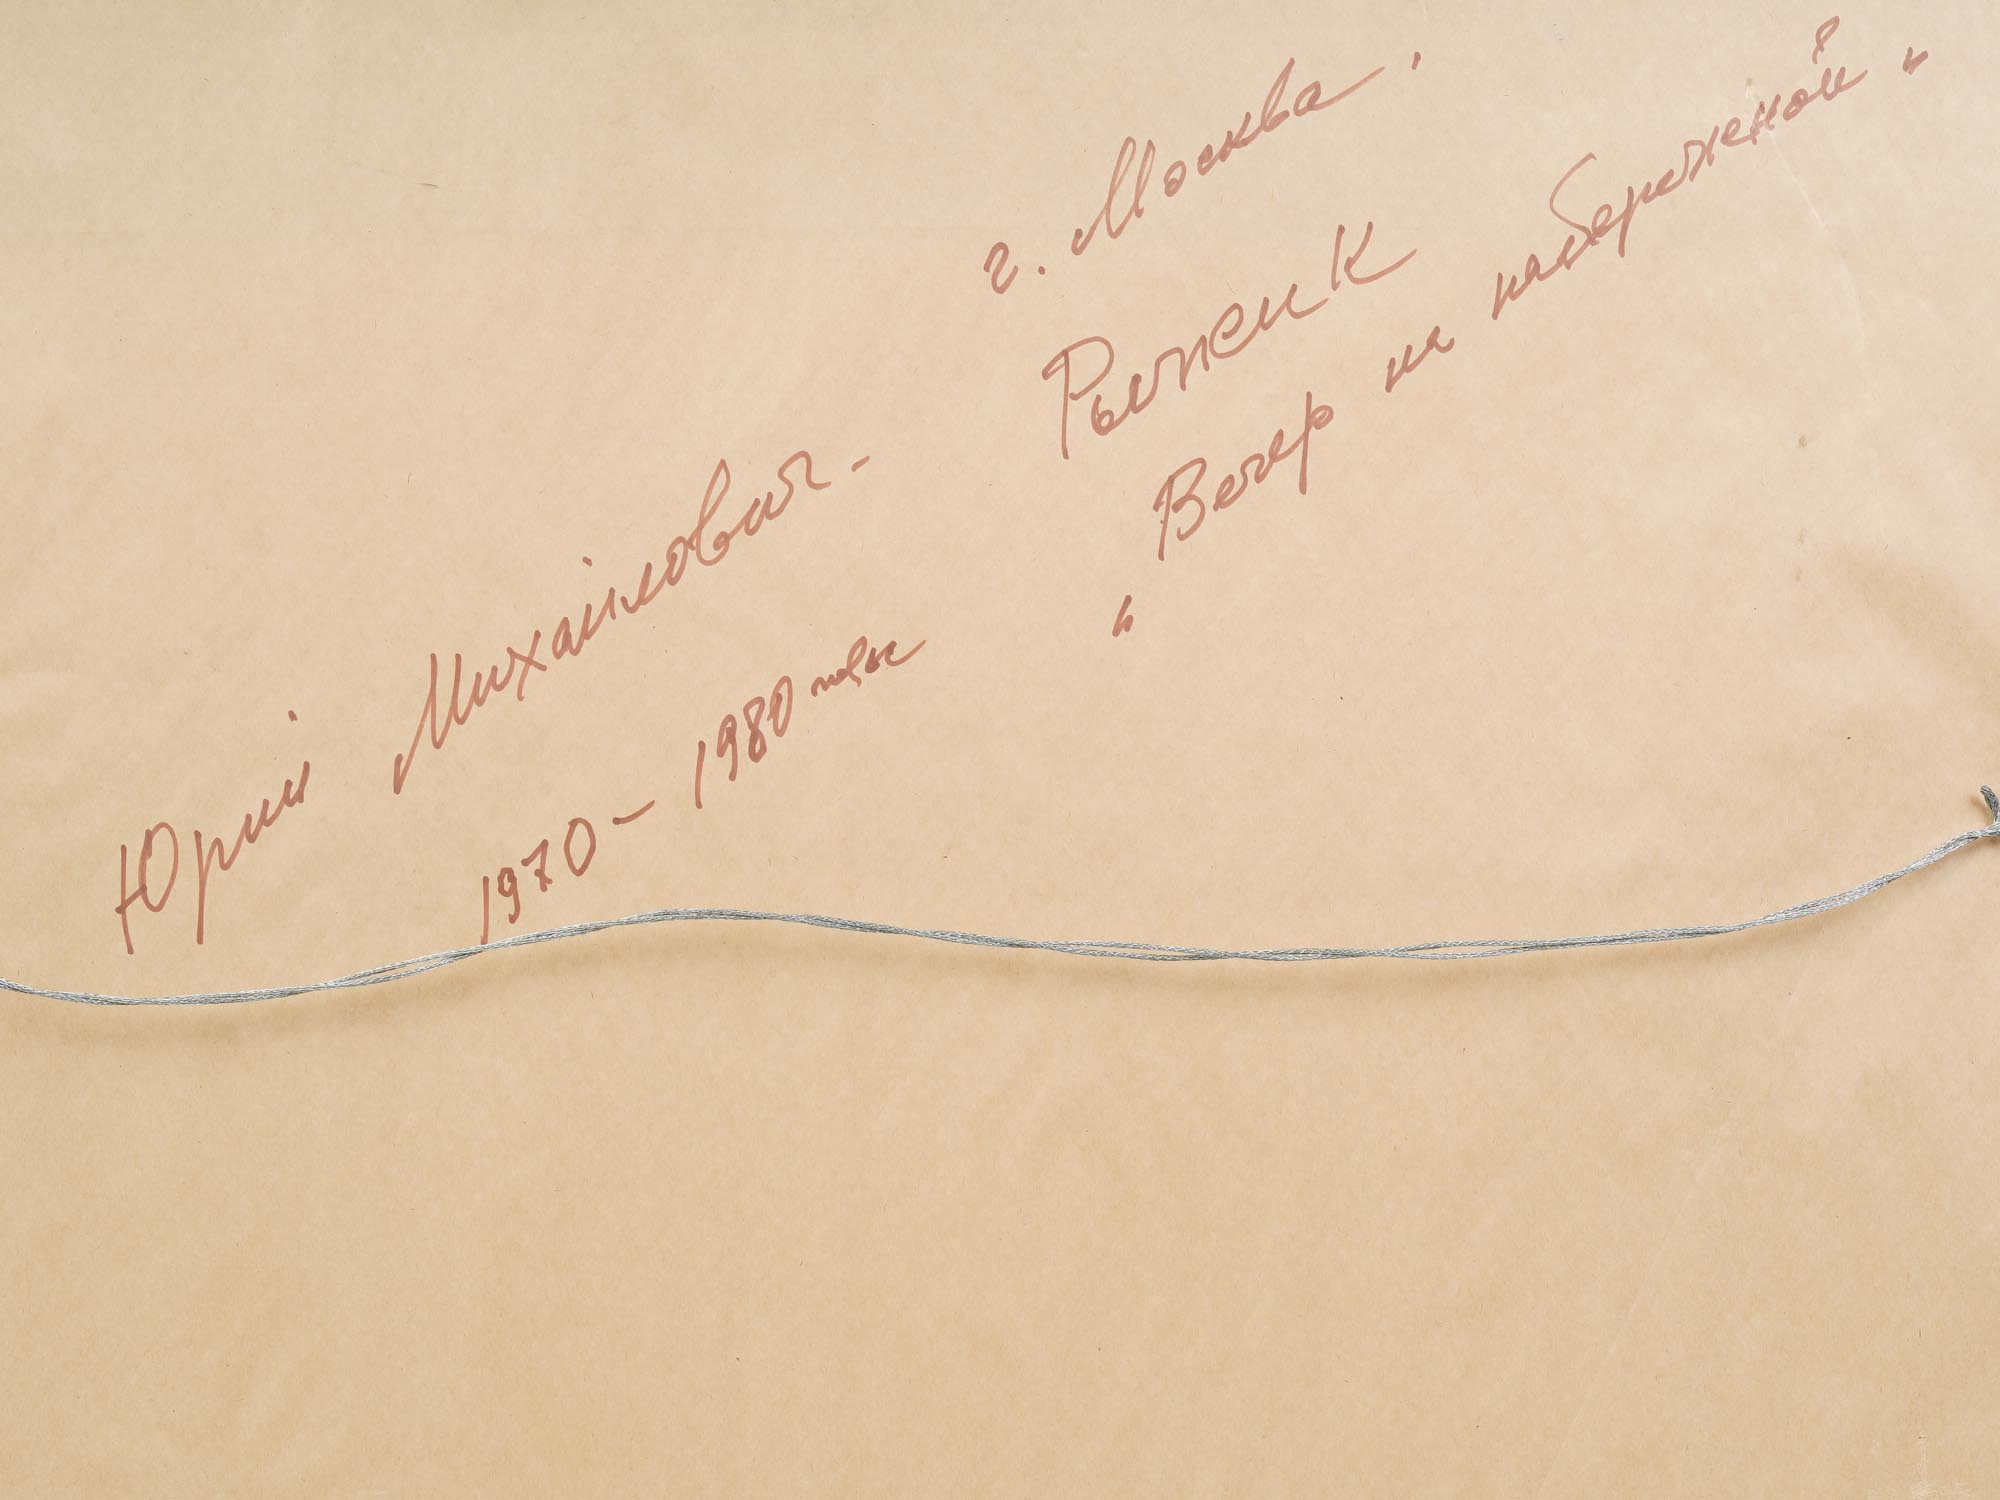 г. Москва.
Юрий Михайлович - Рыжик
1970 - 1980
"Вечер на набережной"